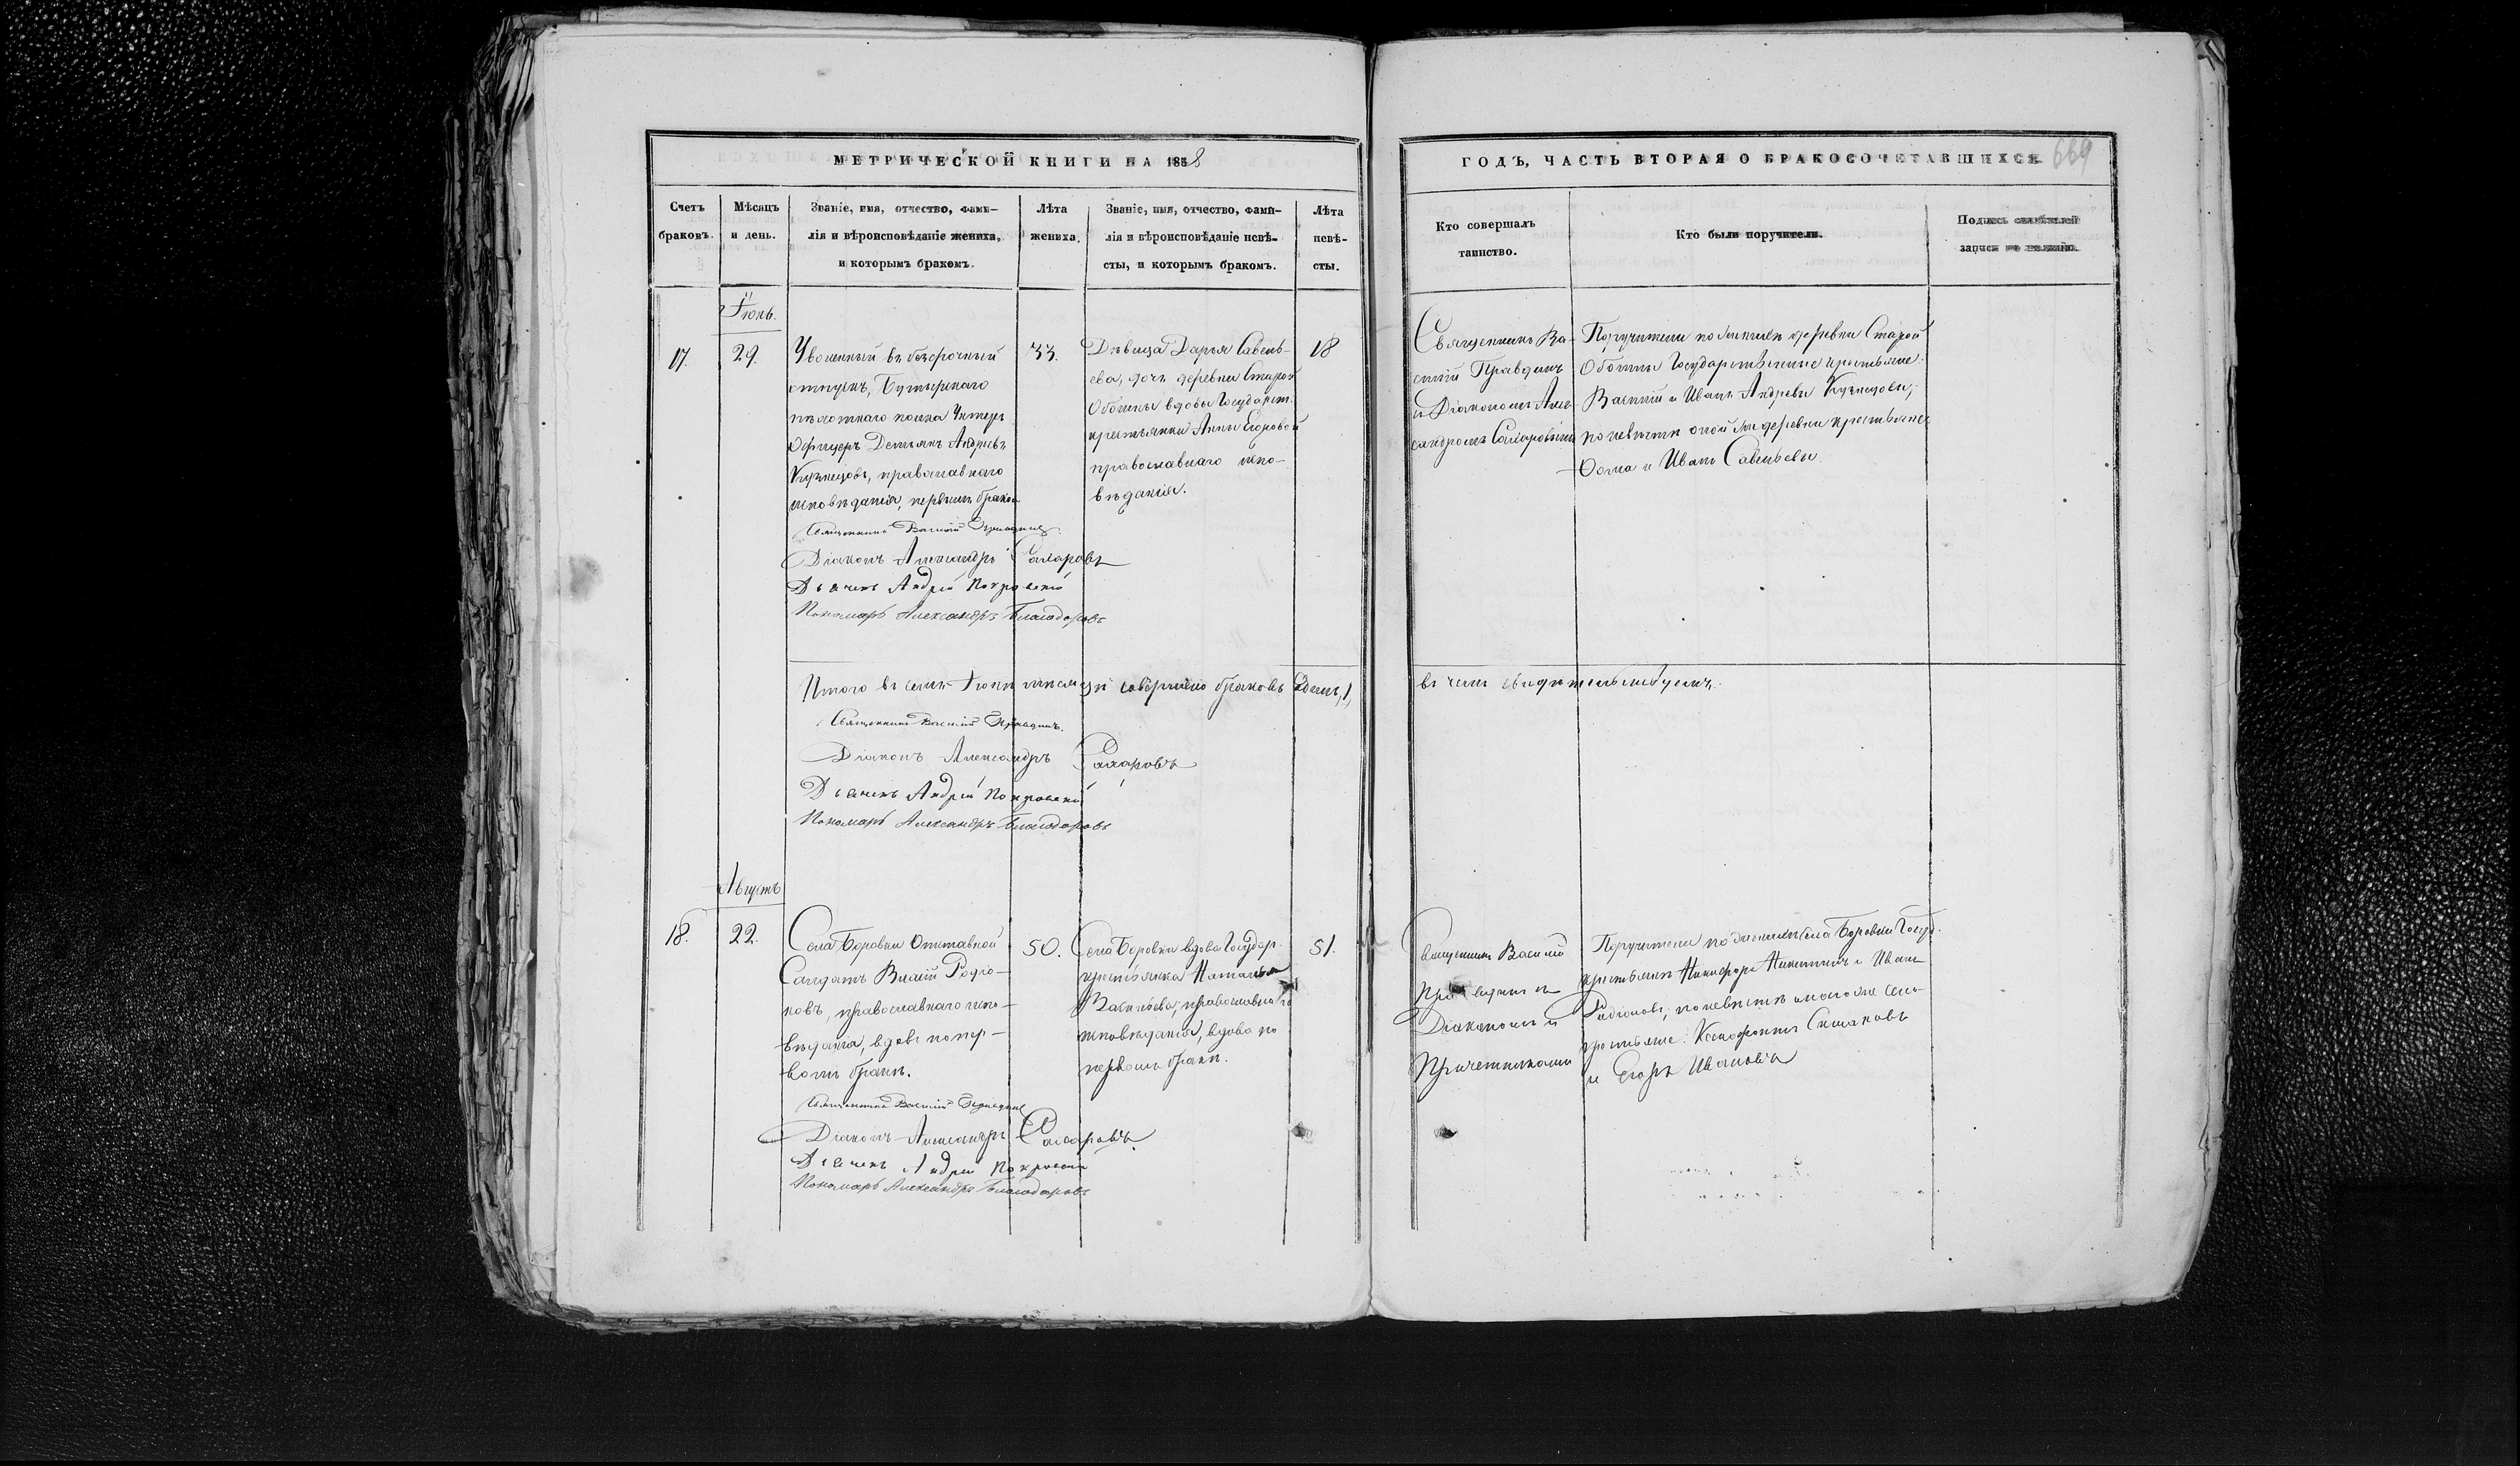 МЕТРИЧЕСКОЙ КНИГИ НА 1858
Счетъ браковъ.
Мѣсяцъ и день.
Званіе, имя, отчество, фами-
лія и вѣроисповѣданіе жениха,
и которымъ бракомъ.
Лѣта жениха.
Званіе, имя, отчество, фами-
лія и вѣроисповѣданіе невѣ-
сты, и которымъ бракомъ.
Лѣта невѣ-
сты.
Іюнь.
17.
29.
Уволенный въ безсрочный
отпускъ, Бутырскаго
пѣхотнаго полка Унтеръ
Офицеръ Демьянъ Андреевъ
Кузнецовъ, православнаго
исповѣданія, первымъ бракомъ
33.
Дѣвица Дарья Савель-
ева, дочь деревни Старой
вдовы Государст.
крестьянки Анны Егоровой
православнаго испо-
вѣданія.
18
Священникъ Василій Правдинъ
Діаконъ Александръ Сахаровъ
Дьячекъ Андрей Покровскій
Пономарь Александръ Благодаровъ
Итого въ семъ Іюнѣ мѣсяцѣ совершено браковъ Одинъ, 1,
Священникъ Василій Правдинъ.
Діаконъ Александръ Сахаровъ
Дьячекъ Андрей Покровскій
Пономарь Александръ Благодаровъ
Августъ
18.
22.
Села Боровки Отставной
Солдатъ Родіо-
новъ, православнаго испо-
вѣданія, вдовъ по пер-
вомъ бракѣ.
50.
Села Боровки вдова Государ.
крестьянка Наталья
Васильева, православнаго
исповѣданія, вдова по
первомъ бракѣ.
51.
Священникъ Василій Правдинъ
Діаконъ Александръ Сахаровъ
Дьячекъ Андрей Покровскій
Пономарь Александръ Благодаровъ
ГОДЪ, ЧАСТЬ ВТОРАЯ О БРАКОСОЧЕТАВШИХСЯ
669
Кто совершалъ
таинство.
Кто были поручители.
Подпись свидѣтелей
записи по желанію.
Священникъ Ва-
силій Правдинъ
съ Діакономъ Алек-
сандромъ Сахаровымъ
Поручители по женихѣ деревни Старой
Государственные крестьяне:
Василій и Иванъ Андреевы Кузнецовы;
по невѣстѣ оной же деревни крестьяне
Ѳома и Иванъ Савельевы.
въ чемъ свидѣтельствуемъ.
Священникъ Василій
Правдинъ съ
Діакономъ и
Причетниками
Поручители по женихѣ села Боровки Госуд.
крестьяне Никифоръ Никитинъ и Иванъ
Родіоновъ; по невѣстѣ онаго же села
крестьяне: Ксенофонтъ
и Егоръ Ивановъ